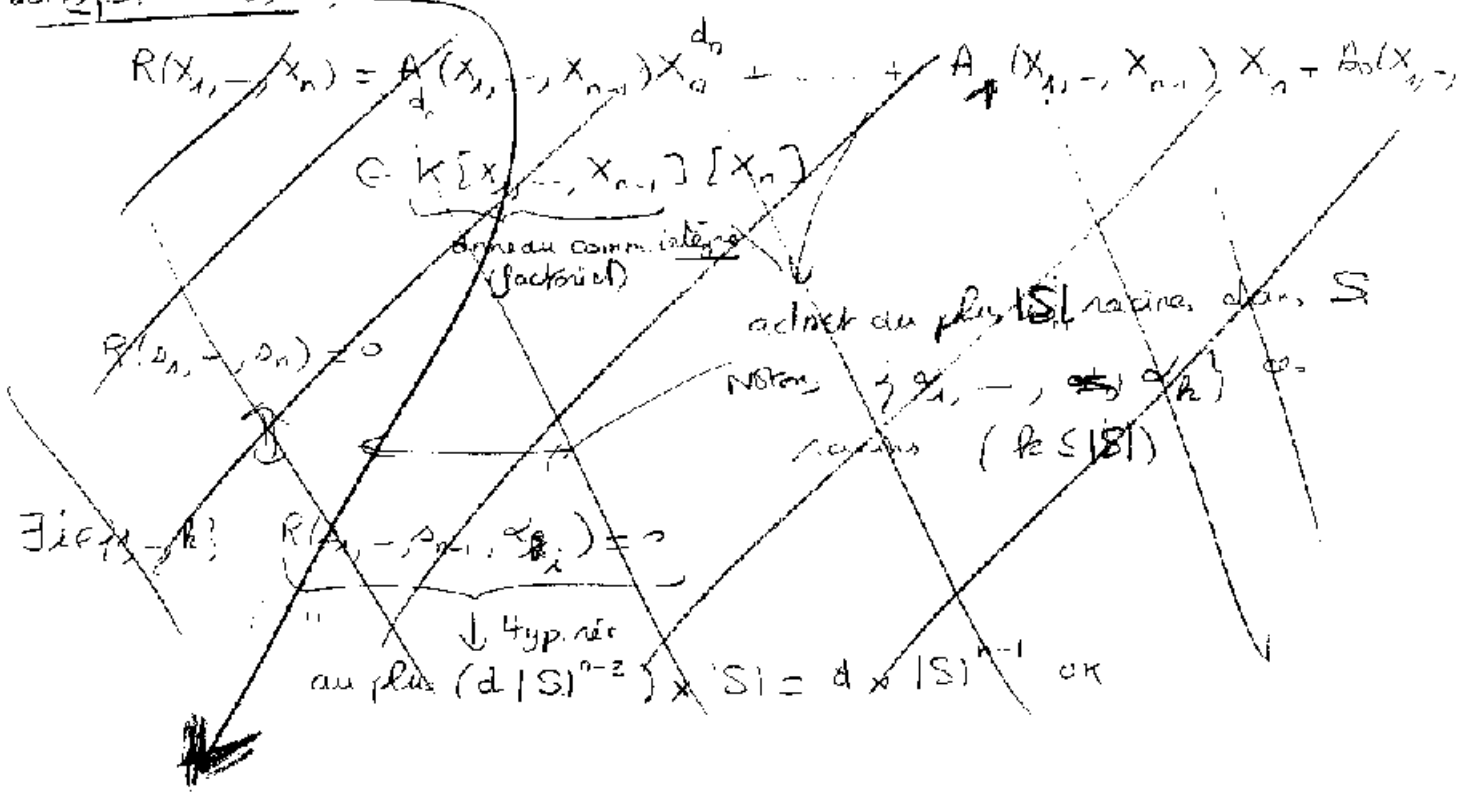 R(X_1, -, X_n) = A_{d_n}(X_1, -, X_{n-1}) X_n^{d_n} + ..... + A_1(X_1, -, X_{n-1}) X_n + A_0(X_1, -,
∈ K[X_1, -, X_{n-1}][X_n]
anneau comm. intègre
(factoriel)
admet au plus |S| racines dans S
R(s_1, -, s_n) = 0
Notons {α_1, -, α_k}
racines (k ≤ |S|)
∃i∈{1, -, k} R(s_1, -, s_{n-1}, α_i) = 0
↓ Hyp. réc
au plus (d |S|^{n-2}) × |S| = d × |S|^{n-1} OK